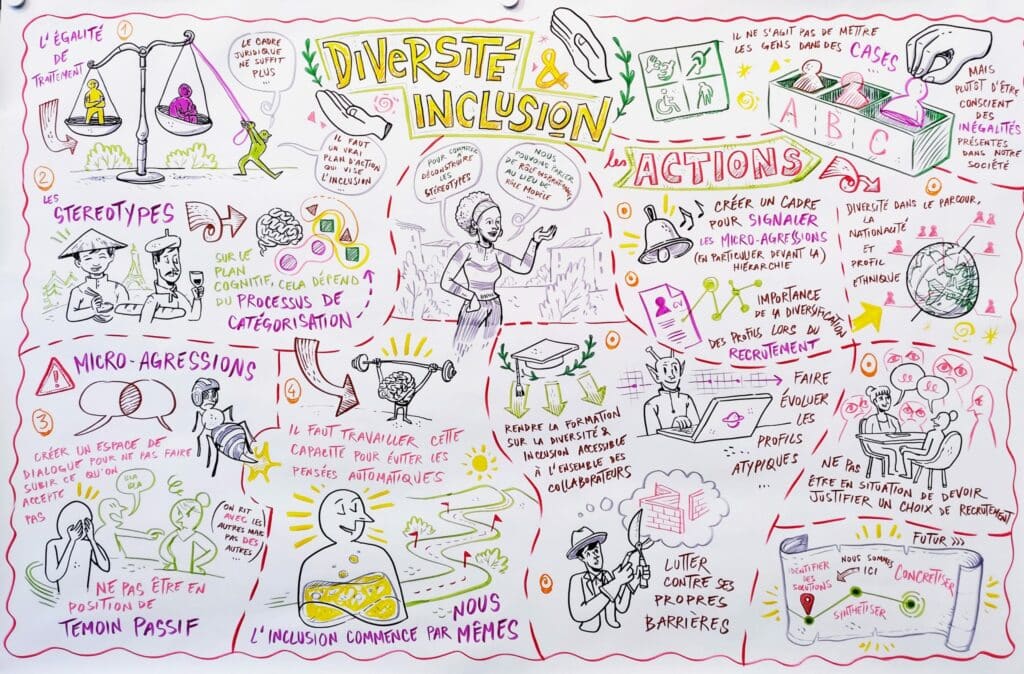 DIVERSITÉ &
INCLUSION
1
L'ÉGALITÉ
DE
TRAITEMENT
LE CADRE
JURIDIQUE
NE SUFFIT
PLUS ...
IL FAUT
UN VRAI
PLAN D'ACTION
QUI VISE
L'INCLUSION
2
LES
STEREOTYPES
SUR LE
PLAN
COGNITIF, CELA DÉPEND
DU PROCESSUS DE
CATÉGORISATION
POUR COMMENCER
DÉCONSTRUIRE
LES
STÉRÉOTYPES
NOUS
POUVONS PARLER
DE RÔLE INSPIRATIONNEL
AU LIEU DE
RÔLE MODÈLE
MICRO-AGRESSIONS
3
CRÉER UN ESPACE DE
DIALOGUE POUR NE PAS FAIRE
SUBIR CE QU'ON
ACCEPTE
PAS
BLA
BLA
ON RIT
AVEC LES
AUTRES MAIS
PAS DES
AUTRES ...
NE PAS ÊTRE EN
POSITION DE
TEMOIN PASSIF
4
IL FAUT TRAVAILLER CETTE
CAPACITÉ POUR ÉVITER LES
PENSÉES AUTOMATIQUES
L'INCLUSION COMMENCE PAR
NOUS
MÊMES
IL NE S'AGIT PAS DE METTRE
LES GENS DANS DES CASES
A B C
MAIS
PLUTOT D'ÊTRE
CONSCIENT
DES
INÉGALITÉS
PRÉSENTES
DANS NOTRE
SOCIÉTÉ
les ACTIONS
CRÉER UN CADRE
POUR SIGNALER
LES MICRO-AGRESSIONS
(EN PARTICULIER DEVANT LA)
HIÉRARCHIE
DIVERSITÉ DANS LE PARCOUR,
LA
NATIONALITÉ
ET
PROFIL
ETHNIQUE
CV
IMPORTANCE
DE LA DIVERSIFICATION
DES PROFILS LORS DU
RECRUTEMENT
RENDRE LA FORMATION
SUR LA DIVERSITÉ &
INCLUSION ACCESSIBLE
À L'ENSEMBLE DES
COLLABORATEURS
FAIRE
ÉVOLUER
LES
PROFILS
ATYPIQUES
NE PAS
ÊTRE EN SITUATION DE DEVOIR
JUSTIFIER UN CHOIX DE RECRUTEMENT
LUTTER
CONTRE SES
PROPRES
BARRIÈRES
FUTUR >>>
IDENTIFIER
LES
SOLUTIONS
NOUS SOMMES
ICI
SYNTHÉTISER
CONCRÉTISER